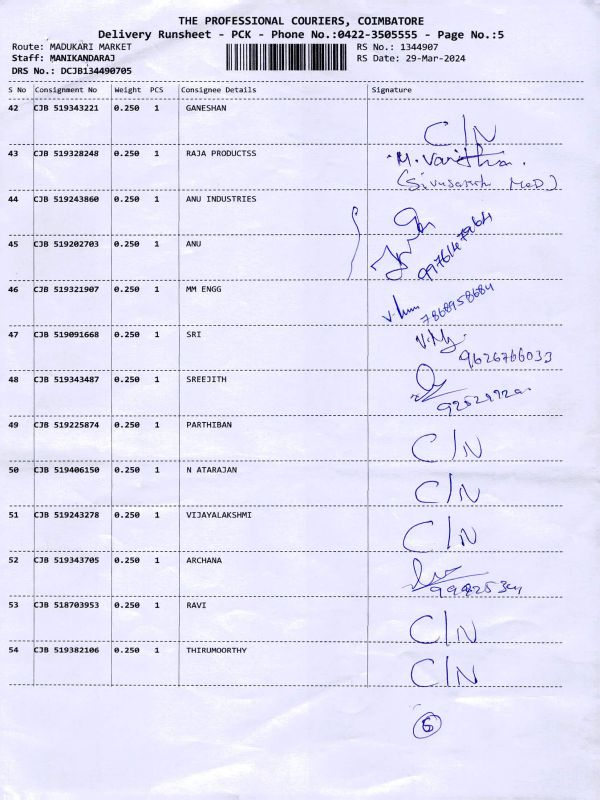 THE PROFESSIONAL COURIERS, COIMBATORE
Delivery Runsheet - PCK - Phone No.:0422-3505555 - Page No.:5
Route: MADUKARI MARKET
RS No.: 1344907
Staff: MANIKANDARAJ
RS Date: 29-Mar-2024
DRS No.: DCJB134490705
S No Consignment No Weight PCS Consignee Details Signature
42 CJB 519343221 0.250 1 GANESHAN
C/N
43 CJB 519328248 0.250 1 RAJA PRODUCTSS
44 CJB 519243860 0.250 1 ANU INDUSTRIES
45 CJB 519202703 0.250 1 ANU
46 CJB 519321907 0.250 1 MM ENGG
7868958684
47 CJB 519091668 0.250 1 SRI
9626766033
48 CJB 519343487 0.250 1 SREEJITH
49 CJB 519225874 0.250 1 PARTHIBAN
C/N
50 CJB 519406150 0.250 1 N ATARAJAN
C/N
51 CJB 519243278 0.250 1 VIJAYALAKSHMI
C/N
52 CJB 519343705 0.250 1 ARCHANA
53 CJB 518703953 0.250 1 RAVI
C/N
54 CJB 519382106 0.250 1 THIRUMOORTHY
C/N